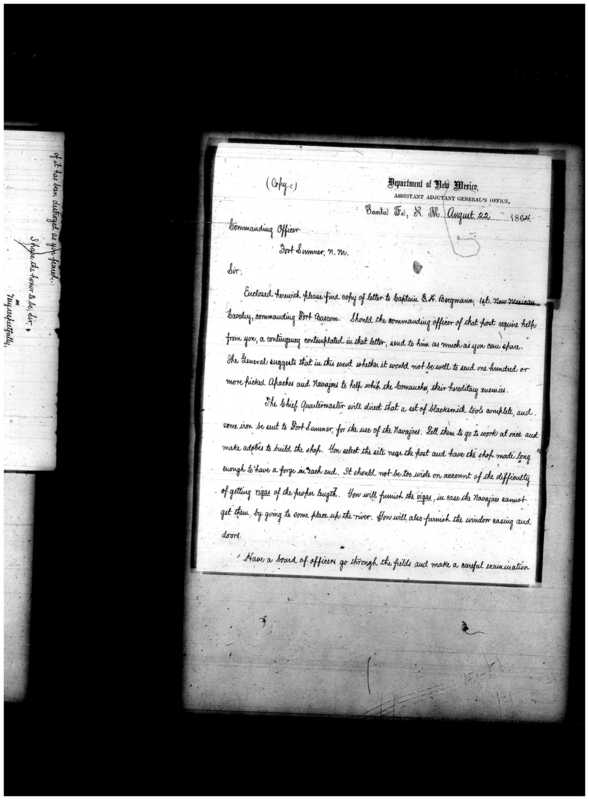 of it has been destroyed as you feared.
I have the honor to be, Sir,
Very respectfully,
(Copy.)
Department of New Mexico,
ASSISTANT ADJUTANT GENERAL'S OFFICE,
Santa Fe, N. M. August 22 1864
Commanding Officer
Fort Sumner, N. M.
Sir.
Enclosed herewith please find copy of letter to Captain E. H. Bergmann, 1st. New Mexican
Cavalry, commanding Fort Bascom. Should the commanding officer of that post require help
from you, a contingency contemplated in that letter, send to him as much as you can spare.
The General suggests that in this event whether it would not be well to send one hundred or
more picked Apaches and Navajoes to help whip the Comanche, their hereditary enemies.
The Chief Quartermaster will direct that a set of blacksmith tools complete, and
some iron be sent to Fort Sumner, for the use of the Navajoes. Tell them to go to work at once and
make adobes to build the shop. You select the site near the post and have the shop made long
enough to have a forge in each end. It should not be too wide on account of the difficulty
of getting vigas of the proper length. You will furnish the vigas, in case the Navajoes cannot
get them by going to some place up the river. You will also furnish the window casing and
doors.
Have a board of officers go through the fields and make a careful examination